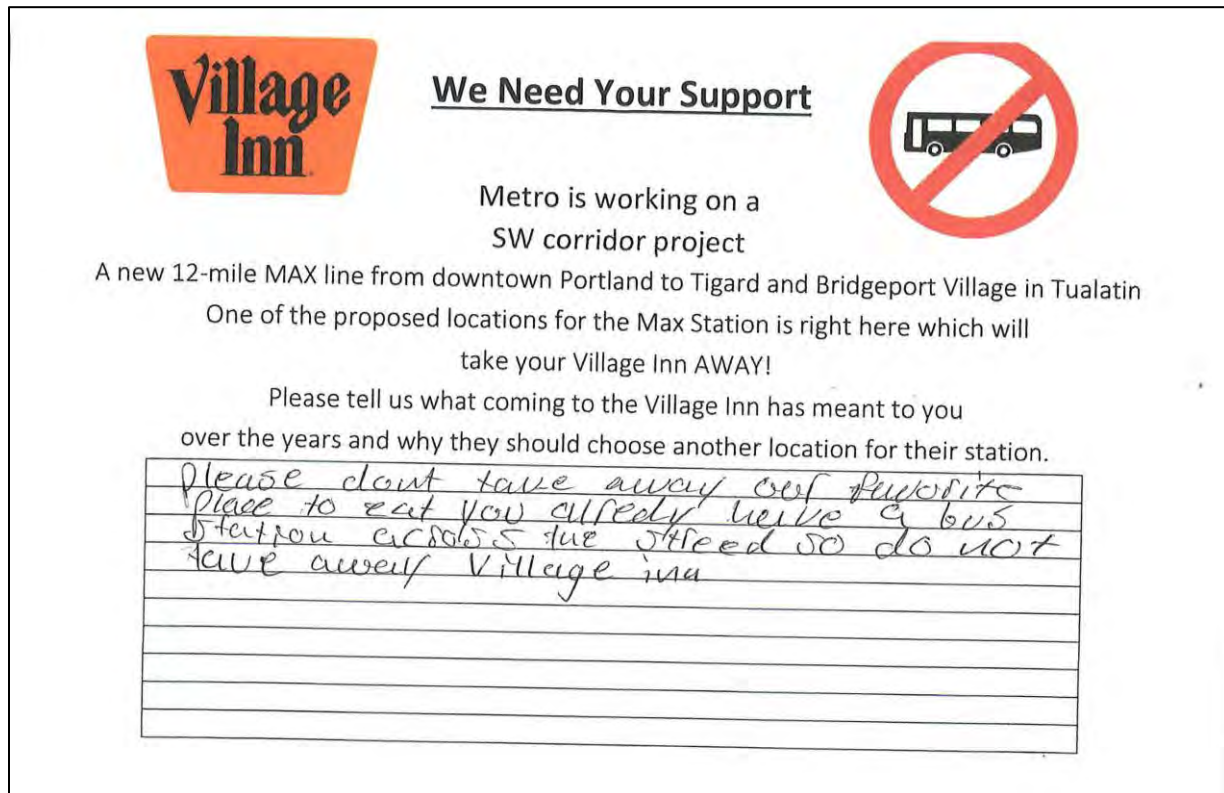 Village
Inn
We Need Your Support
Metro is working on a
SW corridor project
A new 12-mile MAX line from downtown Portland to Tigard and Bridgeport Village in Tualatin
One of the proposed locations for the Max Station is right here which will
take your Village Inn AWAY!
Please tell us what coming to the Village Inn has meant to you
over the years and why they should choose another location for their station.
please dont take away our favorite
Place to eat you alredy have a bus
station across the streed so do not
take away Village inn